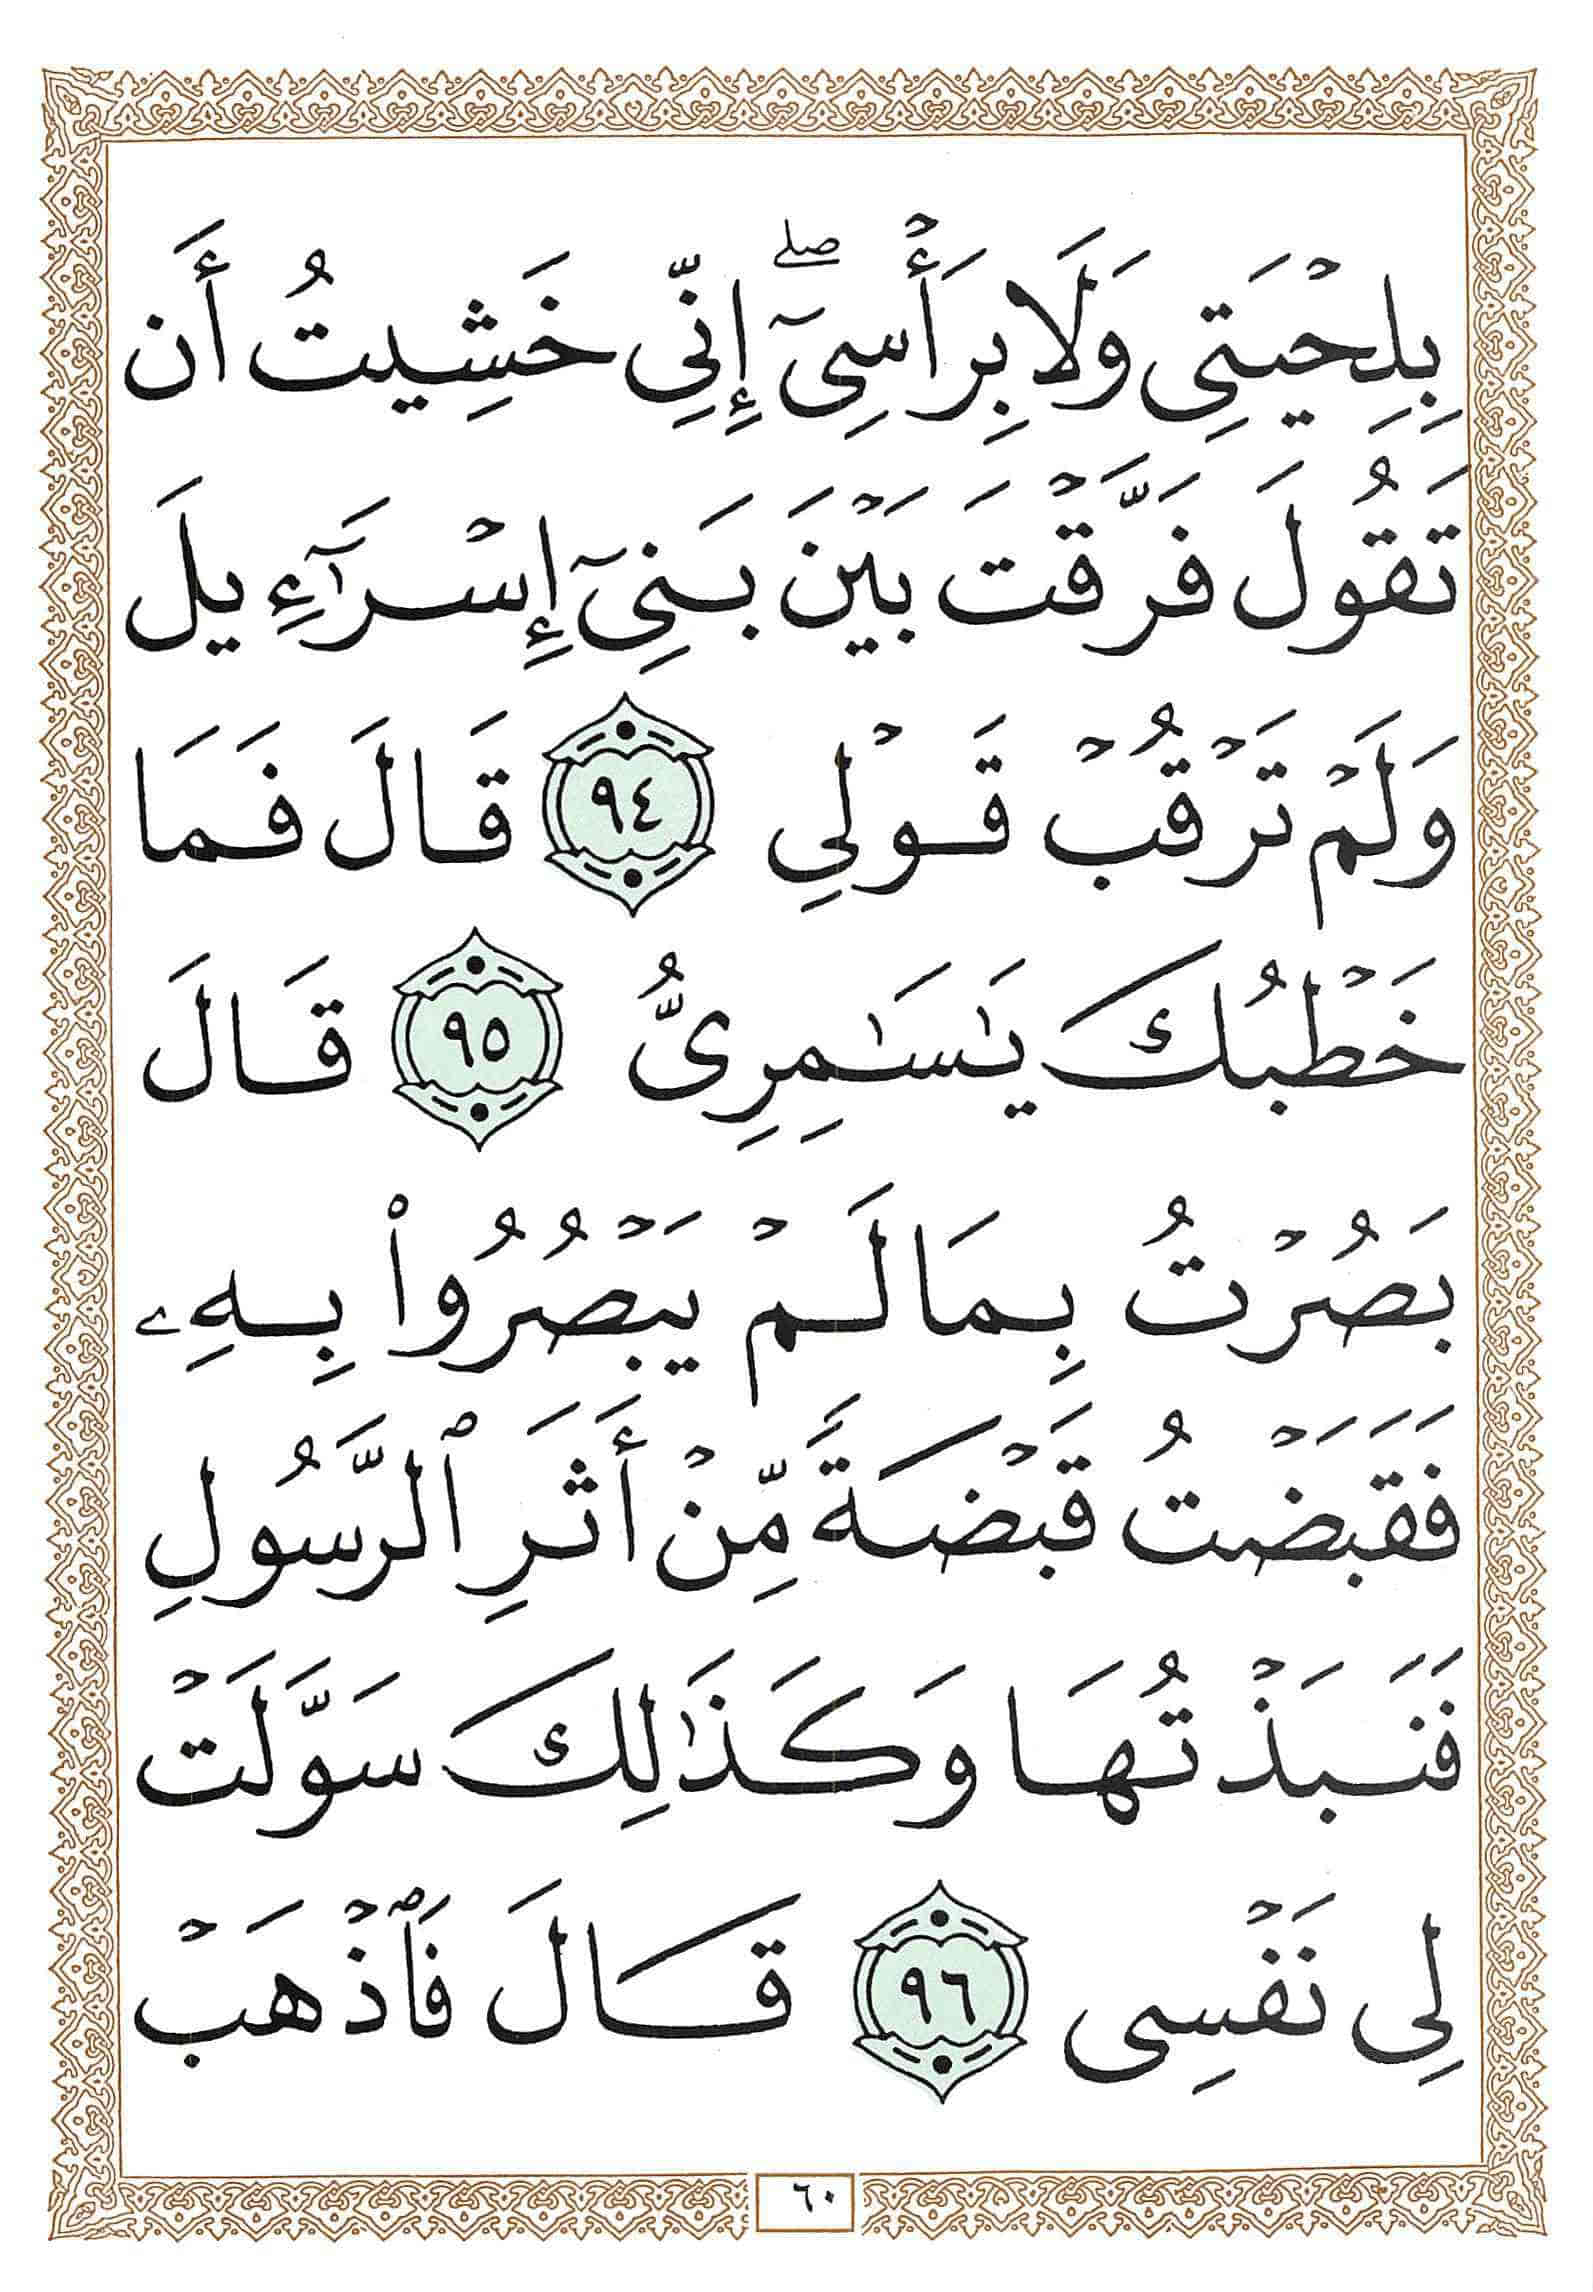 بِلِحۡيَتِي وَلَا بِرَأۡسِيٓۖ إِنِّي خَشِيتُ أَن
تَقُولَ فَرَّقۡتَ بَيۡنَ بَنِيٓ إِسۡرَٰٓءِيلَ
وَلَمۡ تَرۡقُبۡ قَوۡلِي ٩٤ قَالَ فَمَا
خَطۡبُكَ يَٰسَٰمِرِيُّ ٩٥ قَالَ
بَصُرۡتُ بِمَا لَمۡ يَبۡصُرُواْ بِهِۦ
فَقَبَضۡتُ قَبۡضَةٗ مِّنۡ أَثَرِ ٱلرَّسُولِ
فَنَبَذۡتُهَا وَكَذَٰلِكَ سَوَّلَتۡ
لِي نَفۡسِي ٩٦ قَالَ فَٱذۡهَبۡ
٦٠